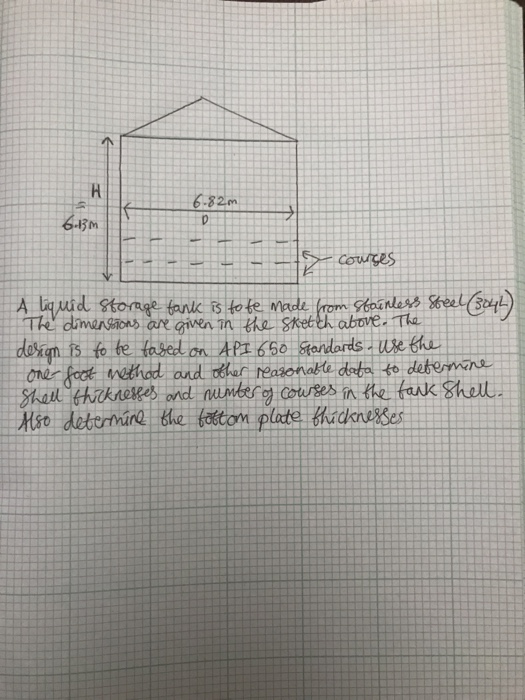 H
=
6.13m
6.82m
D
courses
A liquid storage tank is to be made from stainless steel (304L)
The dimensions are given in the sketch above. The
design is to be based on API 650 standards. Use the
one-foot method and other reasonable data to determine
shell thicknesses and number of courses in the tank shell.
Also determine the bottom plate thicknesses